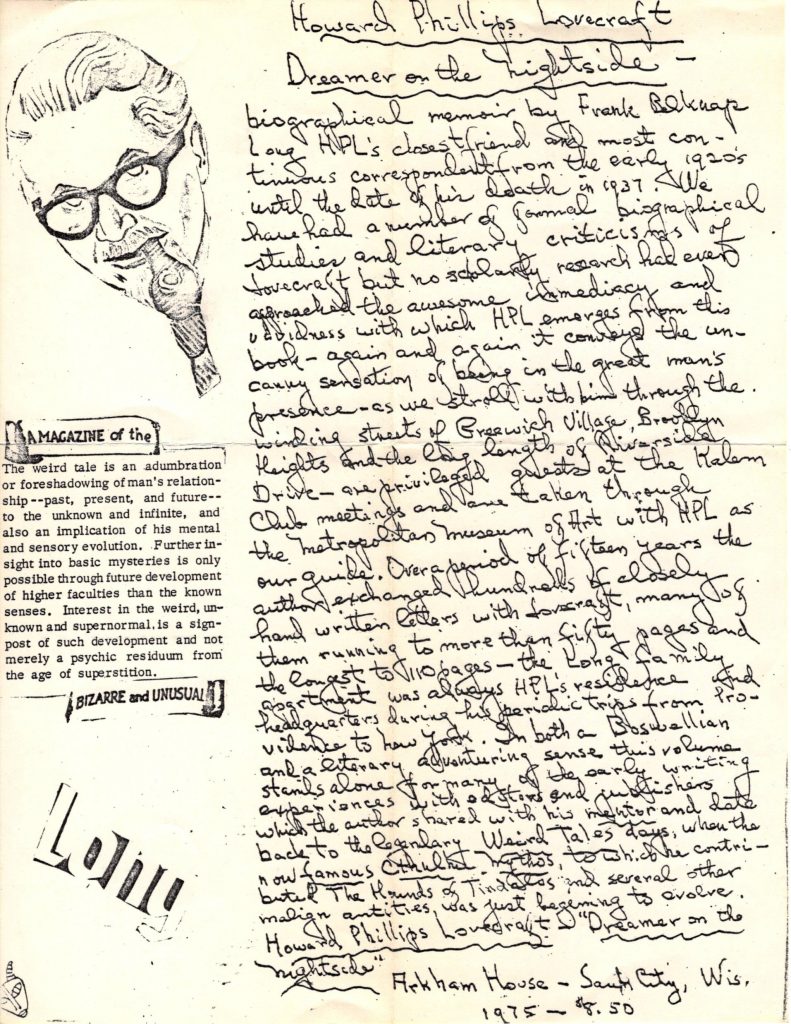 Howard Phillips Lovecraft
Dreamer on the Nightside —
biographical memoir by Frank Belknap
Long HPL's closest friend and most con-
tinuous correspondent from the early 1920's
until the date of his death in 1937. We
have had a number of formal biographical
studies and literary criticisms of
Lovecraft but no scholarly research had ever
approached the awesome immediacy and
vividness with which HPL emerges from this
book — again and again it conveys the un-
canny sensation of being in the great man's
presence — as we stroll with him through the
winding streets of Greenwich Village, Brooklyn
Heights and the long length of Riverside
Drive — are privileged guests at the Kalem
Club meetings and are taken through
the Metropolitan Museum of Art with HPL as
our guide. Over a period of fifteen years the
author exchanged hundreds of closely
hand written letters with Lovecraft, many of
them running to more than fifty pages and
the longest to 110 pages — the Long family
apartment was always HPL's residence and
headquarters during his periodic trips from Pro-
vidence to New York. In both a Boswellian
and a literary adventuring sense this volume
stands alone for many of the early writing
experiences with editors and publishers
which the author shared with his mentor and date
back to the legendary Weird Tales days, when the
now famous Cthulhu Mythos, to which he contri-
buted The Hounds of Tindalos and several other
malign entities, was just begening to evolve.
Howard Phillips Lovecraft — "Dreamer on the
Nightside"
Arkham House — Sauk City, Wis.
1975 — $8.50
A MAGAZINE of the
The weird tale is an adumbration
or foreshadowing of man's relation-
ship--past, present, and future--
to the unknown and infinite, and
also an implication of his mental
and sensory evolution. Further in-
sight into basic mysteries is only
possible through future development
of higher faculties than the known
senses. Interest in the weird, un-
known and supernormal, is a sign-
post of such development and not
merely a psychic residuum from
the age of superstition.
BIZARRE and UNUSUAL
Long